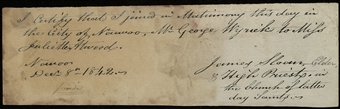 I Certify that I joined in Matrimony this day in
the City of Nauvoo, Mr George Wyrick to Miss
Atwood.
Nauvoo
Decr 8th 1842.
James Sloan, Elder
& High Priest, in
the Church of latter
day Saints.